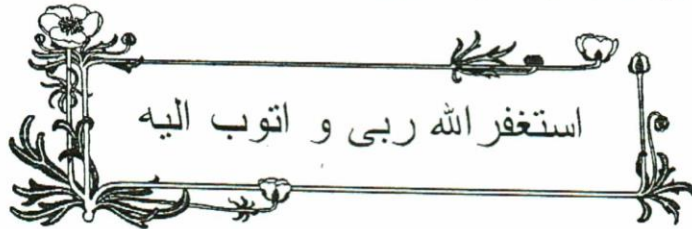 استغفر الله ربی و اتوب الیه